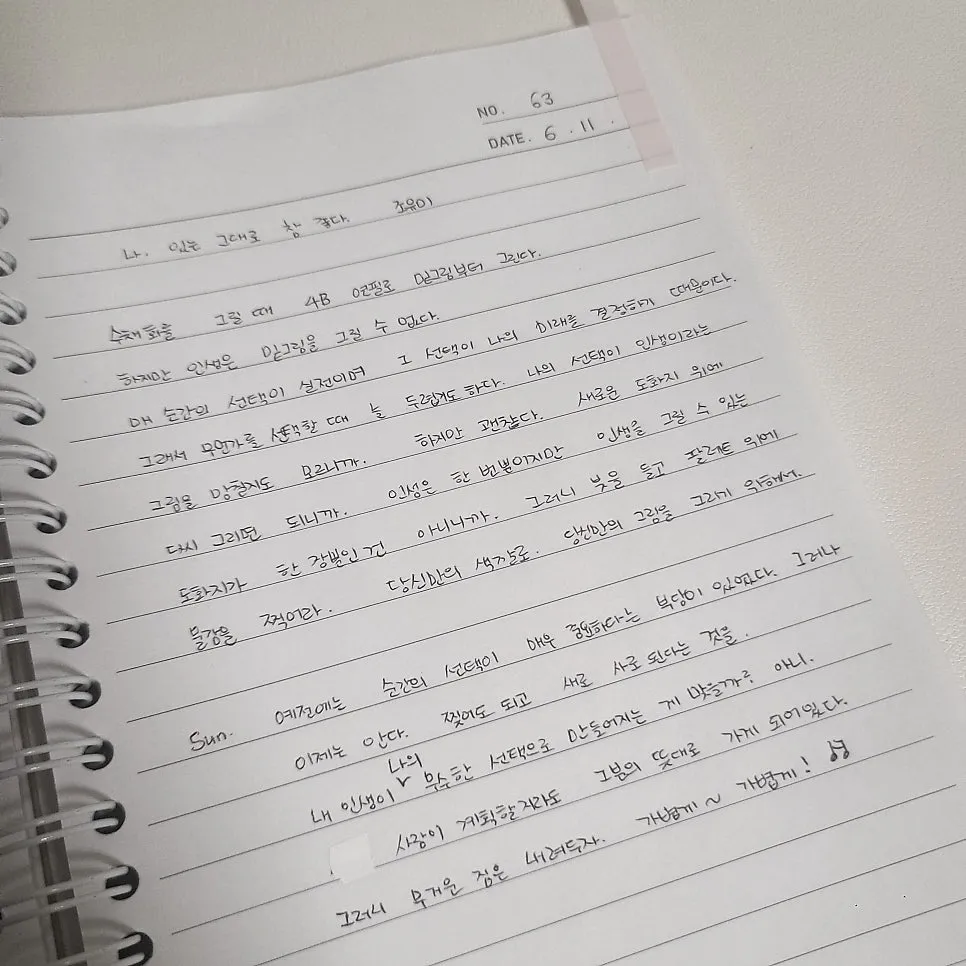 NO. 63
DATE. 6 . 11 .
나, 있는 그대로 참 좋다. 조유미
수채화를 그릴 때 4B 연필로 밑그림부터 그린다.
하지만 인생은 밑그림을 그릴 수 없다.
매 순간의 선택이 실전이며 그 선택이 나의 미래를 결정하기 때문이다.
그래서 무언가를 선택할 때 늘 두렵기도 하다. 나의 선택이 인생이라는
그림을 망칠지도 모르니까. 하지만 괜찮다. 새로운 도화지 위에
다시 그리면 되니까. 인생은 한 번뿐이지만 인생을 그릴 수 있는
도화지가 한 장뿐인 건 아니니까. 그러니 붓을 들고 팔레트 위에
물감을 찍어라. 당신만의 색깔로. 당신만의 그림을 그리기 위해서.
Sun. 예전에는 순간의 선택이 매우 중요하다는 부담이 있었다. 그러나
이제는 안다. 찢어도 되고 새로 사도 된다는 것을.
내 인생이 나의 무수한 선택으로 만들어지는 게 맞을까? 아니.
사람이 계획할지라도 그분의 뜻대로 가게 되어있다.
그러니 무거운 짐은 내려두자. 가볍게~ 가볍게!